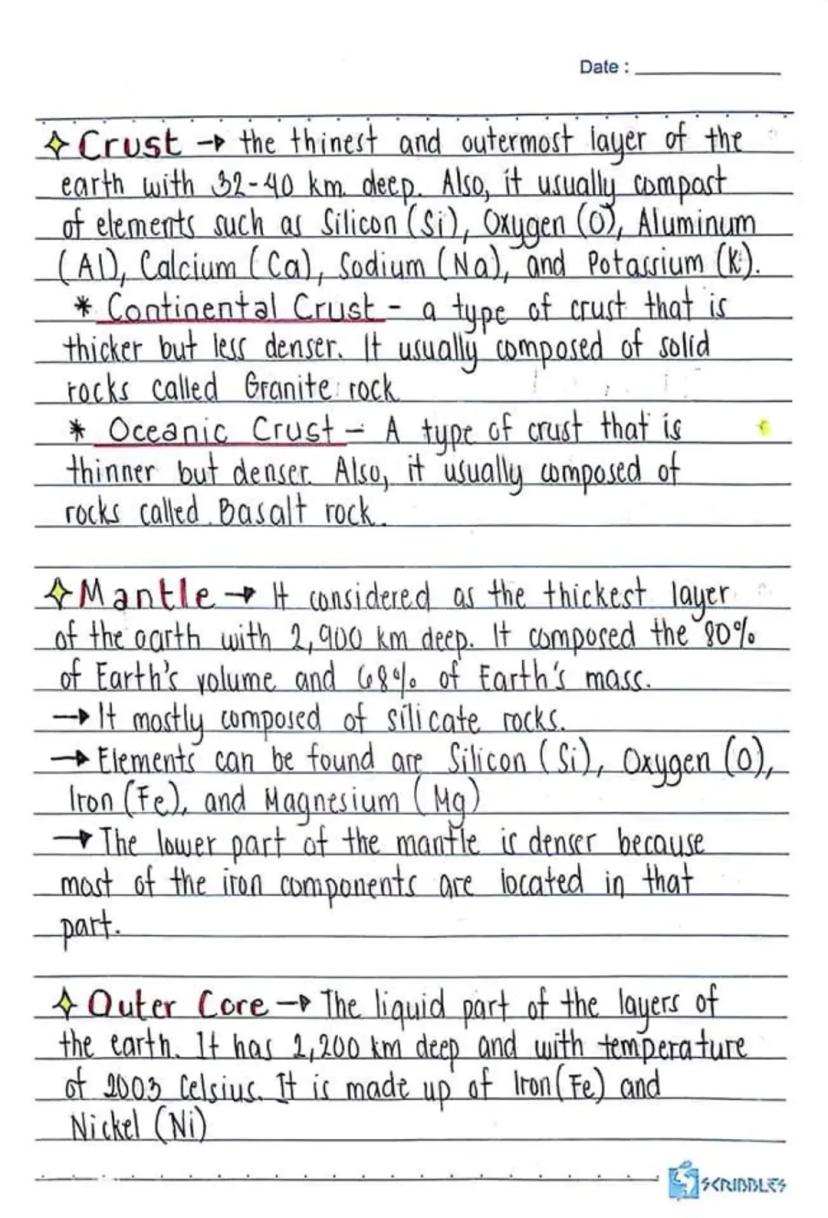 Date :
Crust → the thinest and outermost layer of the
earth with 32-40 km. deep. Also, it usually compost
of elements such as Silicon (Si), Oxygen (O), Aluminum
(Al), Calcium (Ca), Sodium (Na), and Potassium (K).
* Continental Crust - a type of crust that is
thicker but less denser. It usually composed of solid
rocks called Granite rock
* Oceanic Crust - A type of crust that is
thinner but denser. Also, it usually composed of
rocks called Basalt rock.
Mantle → It considered as the thickest layer
of the oarth with 2,900 km deep. It composed the 80%
of Earth's volume and 68% of Earth's mass.
→ It mostly composed of silicate rocks.
→ Elements can be found are Silicon (Si), Oxygen (O),
Iron (Fe), and Magnesium (Mg)
→ The lower part of the mantle is denser because
most of the iron components are located in that
part.
Outer Core → The liquid part of the layers of
the earth. It has 2,200 km deep and with temperature
of 2003 Celsius. It is made up of Iron (Fe) and
Nickel (Ni)
SCRIBBLES